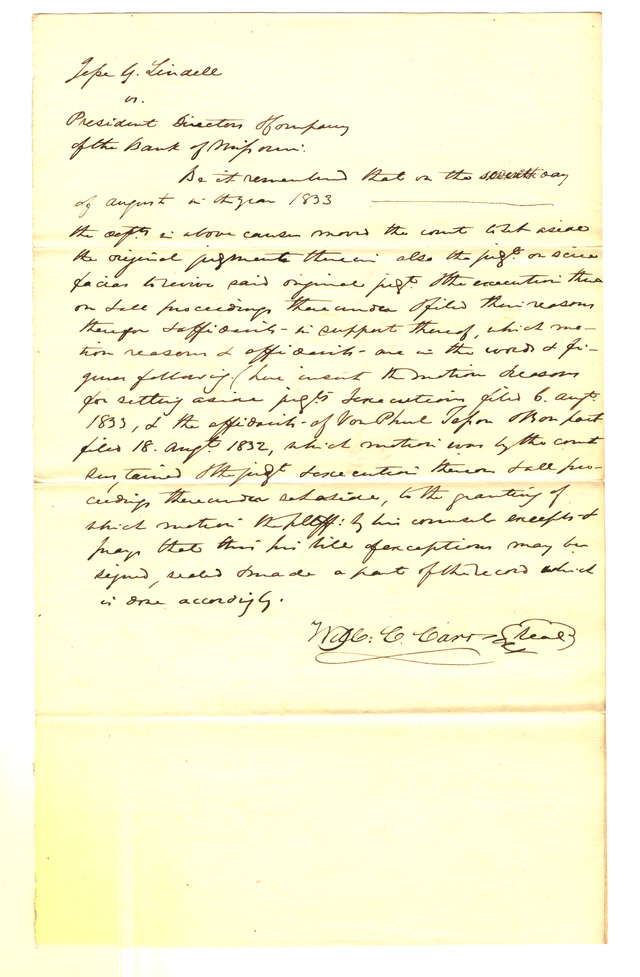 Jesse G. Lindell
vs.
President Directors & Company
of the Bank of Missouri.
Be it remembered that on the seventh day
of august in the year 1833
the defts. in above causes moved the court to set aside
the original judgments therein also the jugt. on scire
facias to revive said original jugt. & the execution there
on & all proceedings thereunder & filed their reasons
therefor & affidavits in support thereof, which mo-
tion reasons & affidavits are in the words & fi-
gures following. (here insert the motion & reasons
for setting aside jugts. & executions filed 6. augt.
1833, & the affidavits of Von Phul
filed 18. augt. 1832, which motion was by the court
sustained & the jugt. & execution thereon & all pro-
ceedings thereunder set aside, to the granting of
which motion the pltff: by his counsel excepts &
prays that this his bill of exceptions may be
signed, sealed & made a part of the record which
is done accordingly.
Will: C. Carr seal